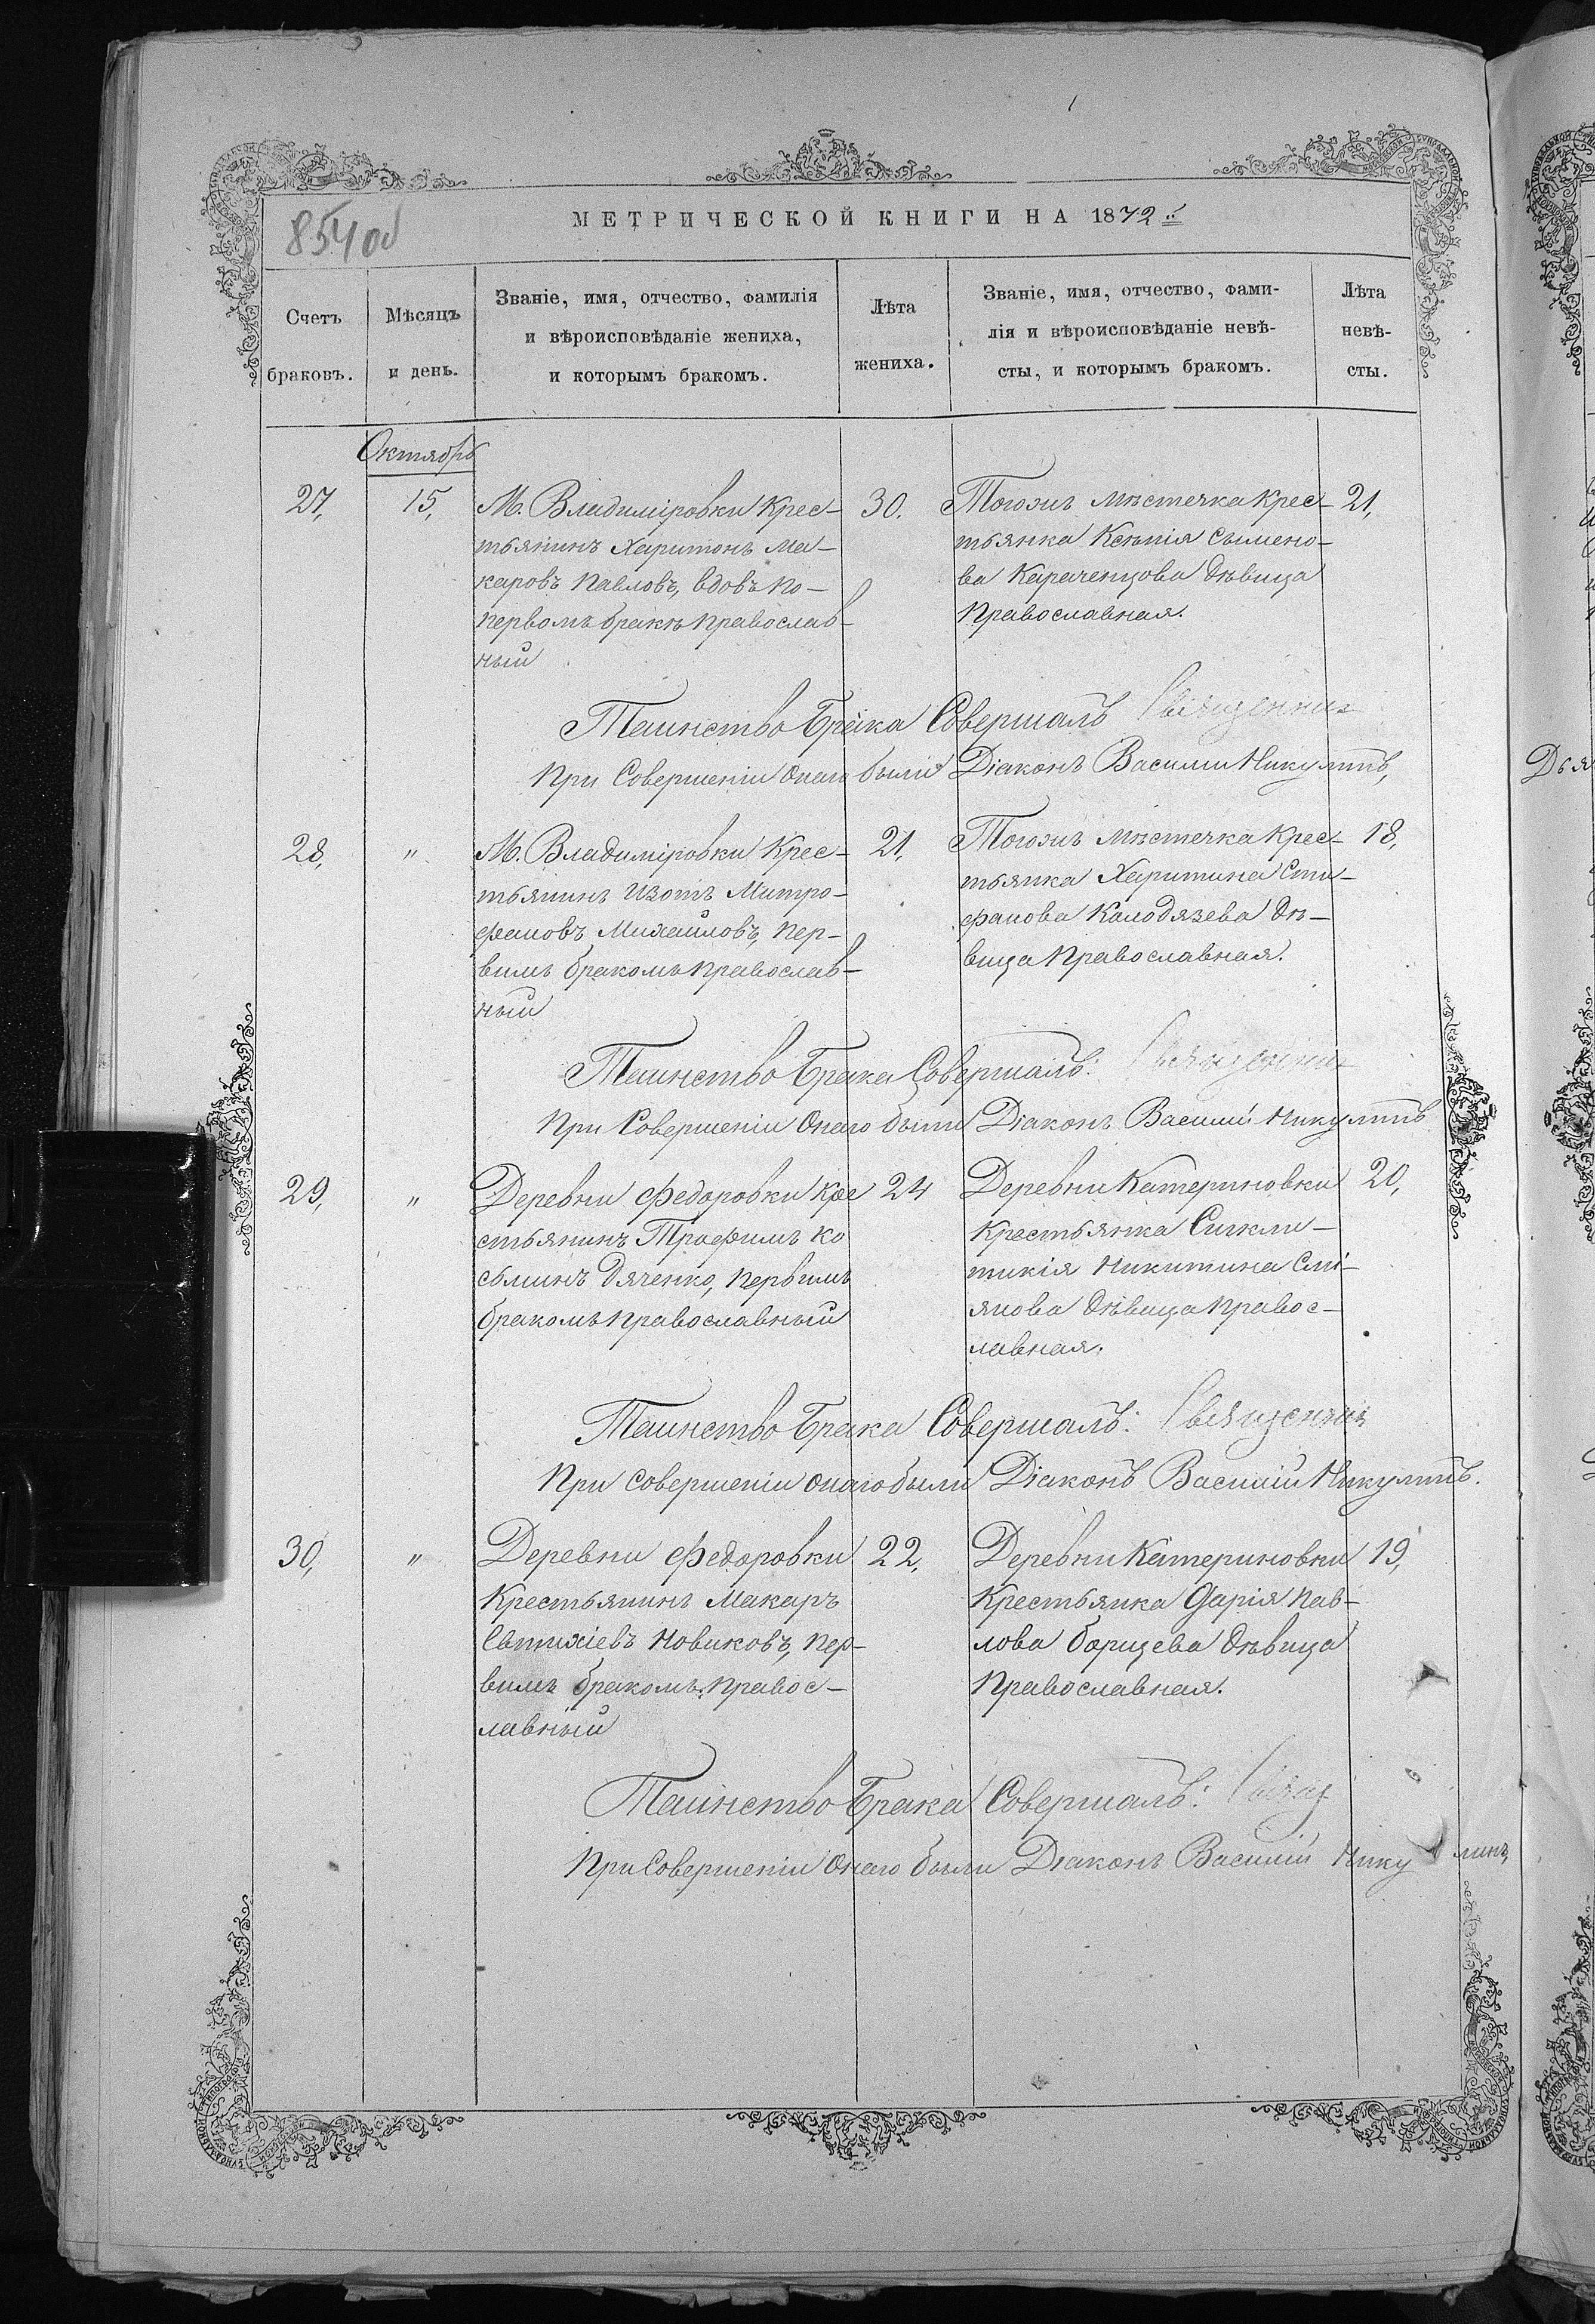 854 об
МЕТРИЧЕСКОЙ КНИГИ НА 1872 й
Счетъ
браковъ.
Мѣсяцъ
и день.
Званіе, имя, отчество, фамилія
и вѣроисповѣданіе жениха,
и которымъ бракомъ.
Лѣта
жениха.
Званіе, имя, отчество, фами-
лія и вѣроисповѣданіе невѣ-
сты, и которымъ бракомъ.
Лѣта
невѣ-
сты.
Октябрь
27,
15,
М. Владиміровки Крес-
тьянинъ Харитонъ Ма-
каровъ Павловъ, вдовъ по-
первомъ бракѣ православ-
ный
30.
Тогожъ мѣстечка крес-
тьянка Ксенія Сымено-
ва Караченцова дѣвица
Православная.
21,
Таинство Брака Совершалъ Священник
При Совершеніи Онаго были Діаконъ Василій Никулинъ,
28,
"
М. Владиміровки Крес-
тьянинъ Изотъ Митро-
фановъ Михайловъ, пер-
вымъ бракомъ православ-
ный
21,
Тогожъ мѣстечка крес-
тьянка Харитина Сти-
фанова Калодязева дѣ-
вица Православная.
18,
Таинство Брака Совершалъ: Священник
При Совершеніи Онаго были Діаконъ Василій Никулинъ
29,
"
Деревни Федоровки кре
стьянинъ Трофимъ Ко
сьминъ Дяченко, первымъ
бракомъ православный
24
Деревни Катериновки
Крестьянка Сигкли-
тикія Никитина Смі-
янова дѣвица Правос-
лавная.
20,
Таинство Брака Совершалъ: Священник
При совершеніи онаго были Діаконъ Василій Никулинъ.
30,
"
Деревни Федоровки
Крестьянинъ Макаръ
Евтихіевъ Новиковъ, пер-
вымъ бракомъ, правос-
лавный
22,
Деревни Катериновки
Крестьянка Дарія Пав-
лова Борщева дѣвица
Православная.
19,
Таинство Брака Совершалъ: Свящ
При Совершеніи Онаго были Діаконъ Василій Никулинъ,
Дья